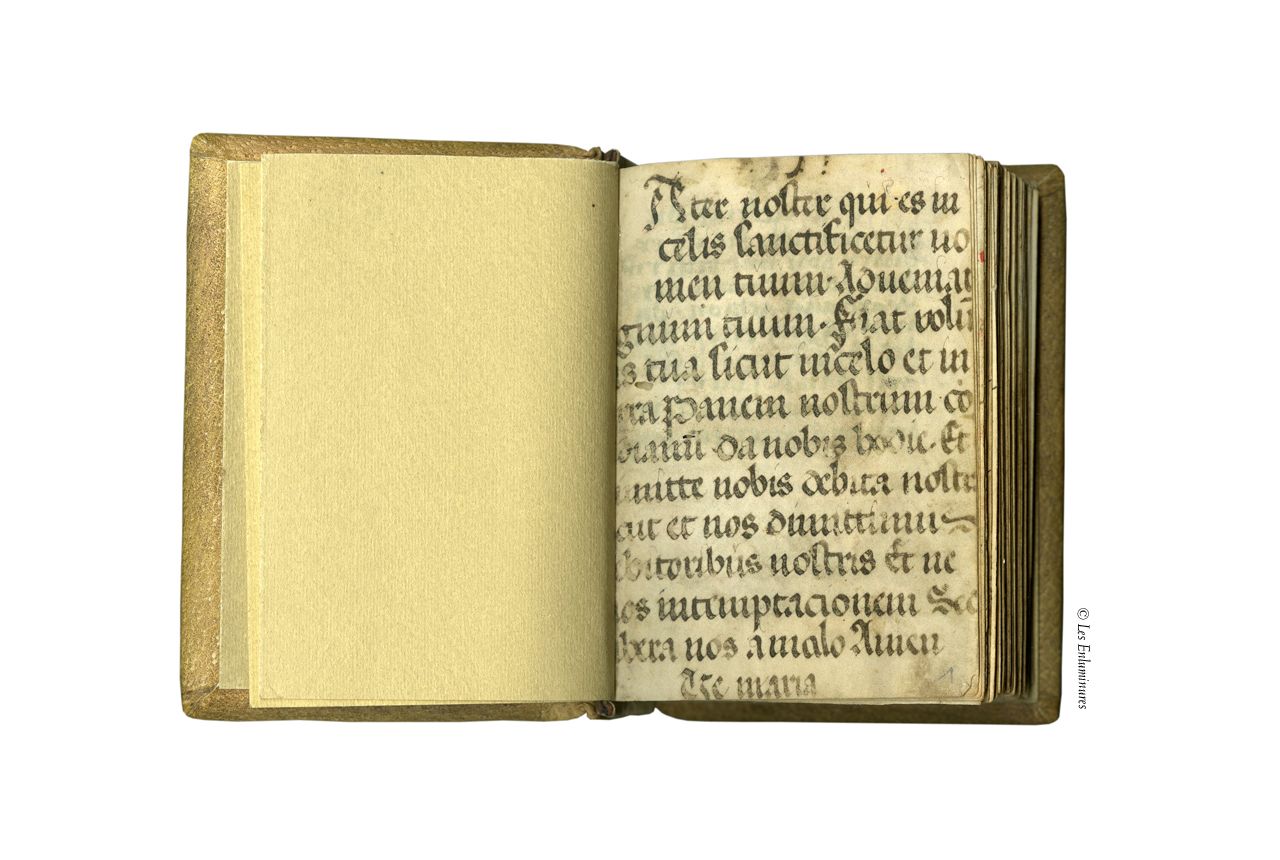 Ater noster qui es in
celis sanctificetur no
men tuum. Adueniat
gnum tuum. Fiat volū
is tua sicut in celo et in
rra Panem nostrum co
dianū da nobis hodie. Et
mitte nobis debita nostr
cut et nos dimittimus
bitoribus nostris Et ne
nos in temptacionem Sed
libera nos a malo Amen
Aue maria
© Les Enluminures